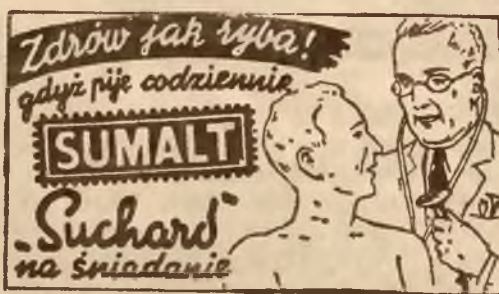 Zdrów jak ryba!
gdyż pije codziennie
SUMALT
„Suchard"
na śniadanie